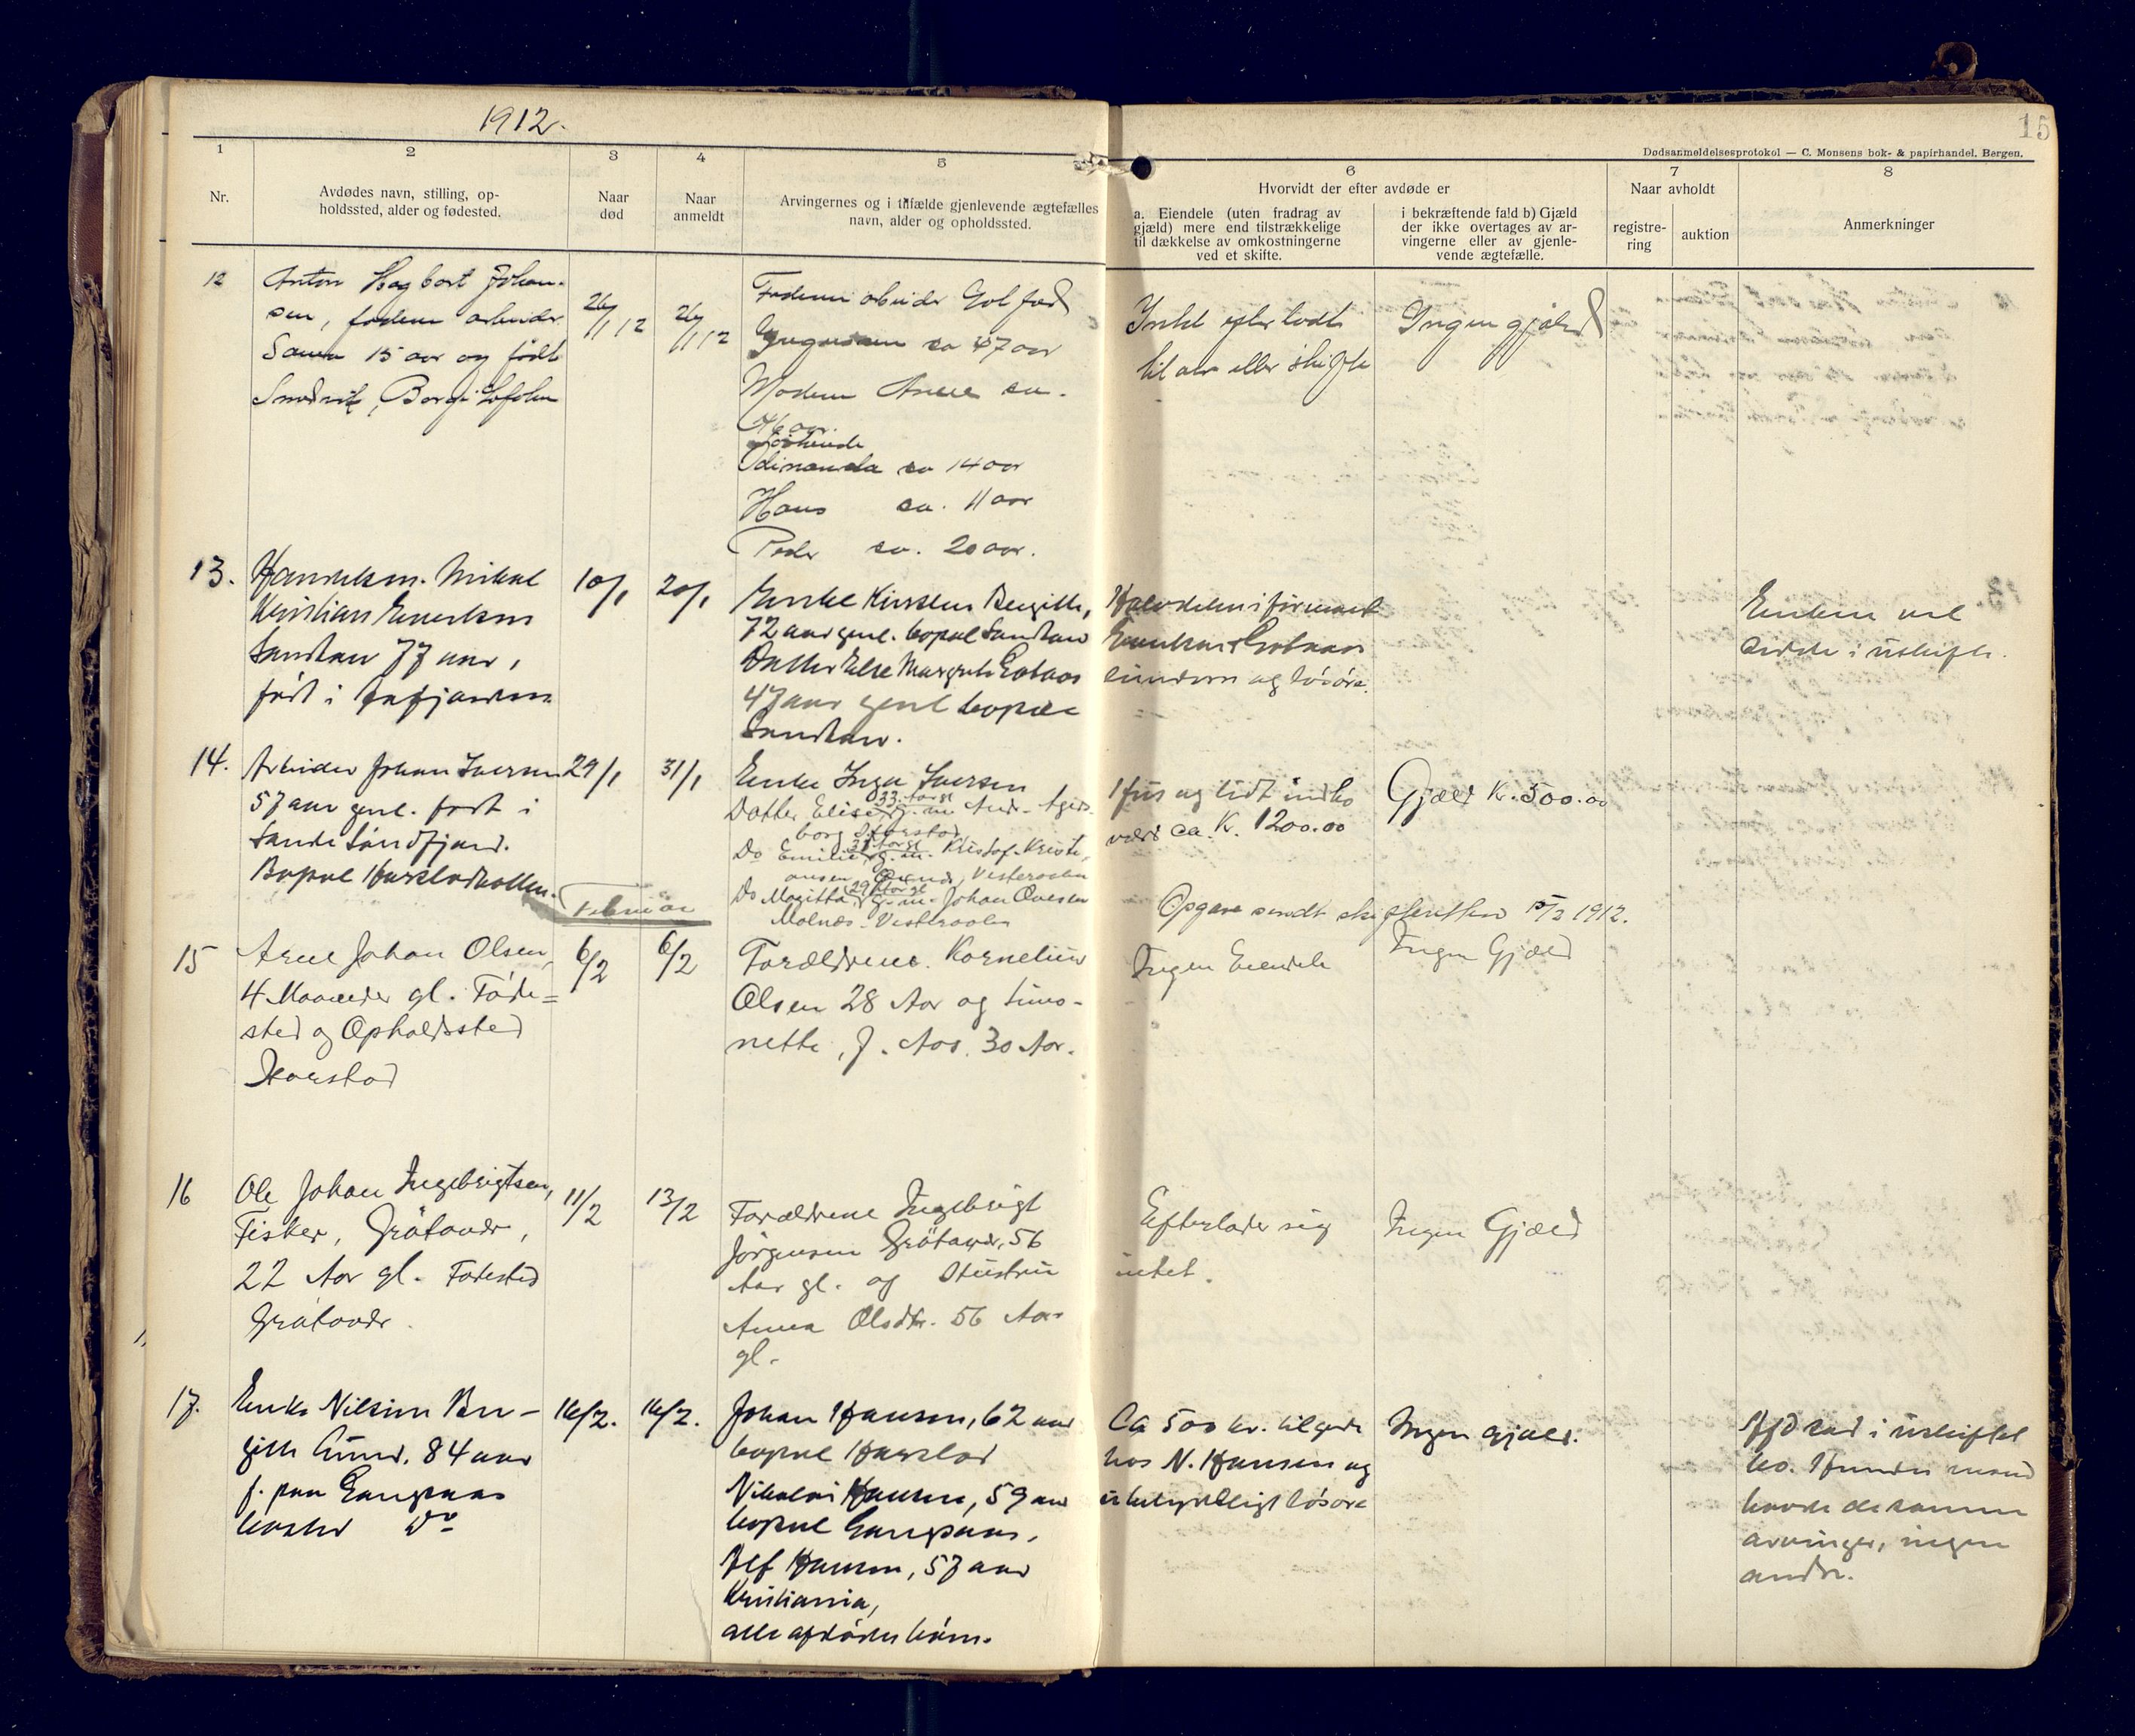 1912.
15
Dødsanmeldelsesprotokol — C. Monsens bok- & papirhandel, Bergen.
1 2 3 4 5 6 7 8
Nr.
Avdødes navn, stilling, op-
holdssted, alder og fødested.
Naar
død
Naar
anmeldt
Arvingernes og i tilfælde gjenlevende ægtefælles
navn, alder og opholdssted.
Hvorvidt der efter avdøde er
a. Eiendele (uten fradrag av
gjæld) mere end tilstrækkelige
til dækkelse av omkostningerne
ved et skifte.
i bekræftende fald b) Gjæld
der ikke overtages av ar-
vingerne eller av gjenle-
vende ægtefælle.
Naar avholdt
registre-
ring
auktion
Anmerkninger
12
Anton Hagbart Johan-
sen, faderen arbeider
15 aar og født
26/1 12
26/1 12
Faderen arbeider
ca 47 aar
Moderen ca.
46 aar.
Søskende
ca 14 aar
Hans ca. 11 aar
Peder ca. 20 aar.
Intet efterladt
til arv eller skifte
Ingen gjæld
13.
Mikal
Kristian
77 aar,
født i
10/1
20/1
Enke Kirsten Bergitte,
72 aar gml. bopæl
Datter Else Margrete
47 aar gml bopæl
og løsøre.
Enken vil
sidde i uskifte.
14.
Arbeider Johan Iversen
57 aar gml. født i
Sande Søndfjord.
Bopæl
29/1
31/1
Enke Inga Iversen
Datter Elise 33 Aar gl g. m.
borg Harstad
Do Emilie 31 Aar gl g. m. Kristof. Kristi-
ansen, Vesteraalen
Do Magitta 29 Aar gl g. m. Johan Ovesen
Malnæs - Vesteraalen
1 hus og lidt indbo
værd ca. Kr. 1200.00
Gjæld Kr. 500.00
Opgave sendt skifteretten 15/2 1912.
Februar
15
Arne Johan Olsen,
4 Maaneder gl. Føde=
sted og Opholdssted
Harstad
6/2
6/2
Forældrene Kornelius
Olsen 28 Aar og Simo-
nette, f. Aas. 30 Aar.
Ingen Eiendele
Ingen Gjæld
16
Ole Johan Ingebrigtsen,
Fisker, Grøtavær,
22 Aar gl. Fødested
Grøtavær
11/2
13/2
Forældrene Ingebrigt
Jørgensen Grøtavær, 56
Aar gl. og Hustru
Anna Olsdtr. 56 Aar
gl.
Efterlader sig
intet.
Ingen Gjæld
17.
Enke Nilsine Ber-
gitte 84 aar
f. paa Gangsaas
bosted do
16/2.
16/2.
Johan Hansen, 62 aar
bopæl Harstad
Nikolai Hansen, 59 aar
bopæl Gangsaas,
Alf Hansen, 57 aar
Kristiania,
alle afdødes børn.
Ca 500 kr. tilgode
hos N. Hansen og
ubetydeligt løsøre
Ingen gjæld.
Afd sad i uskiftet
bo. Hendes mand
havde de samme
arvinger, ingen
andre.